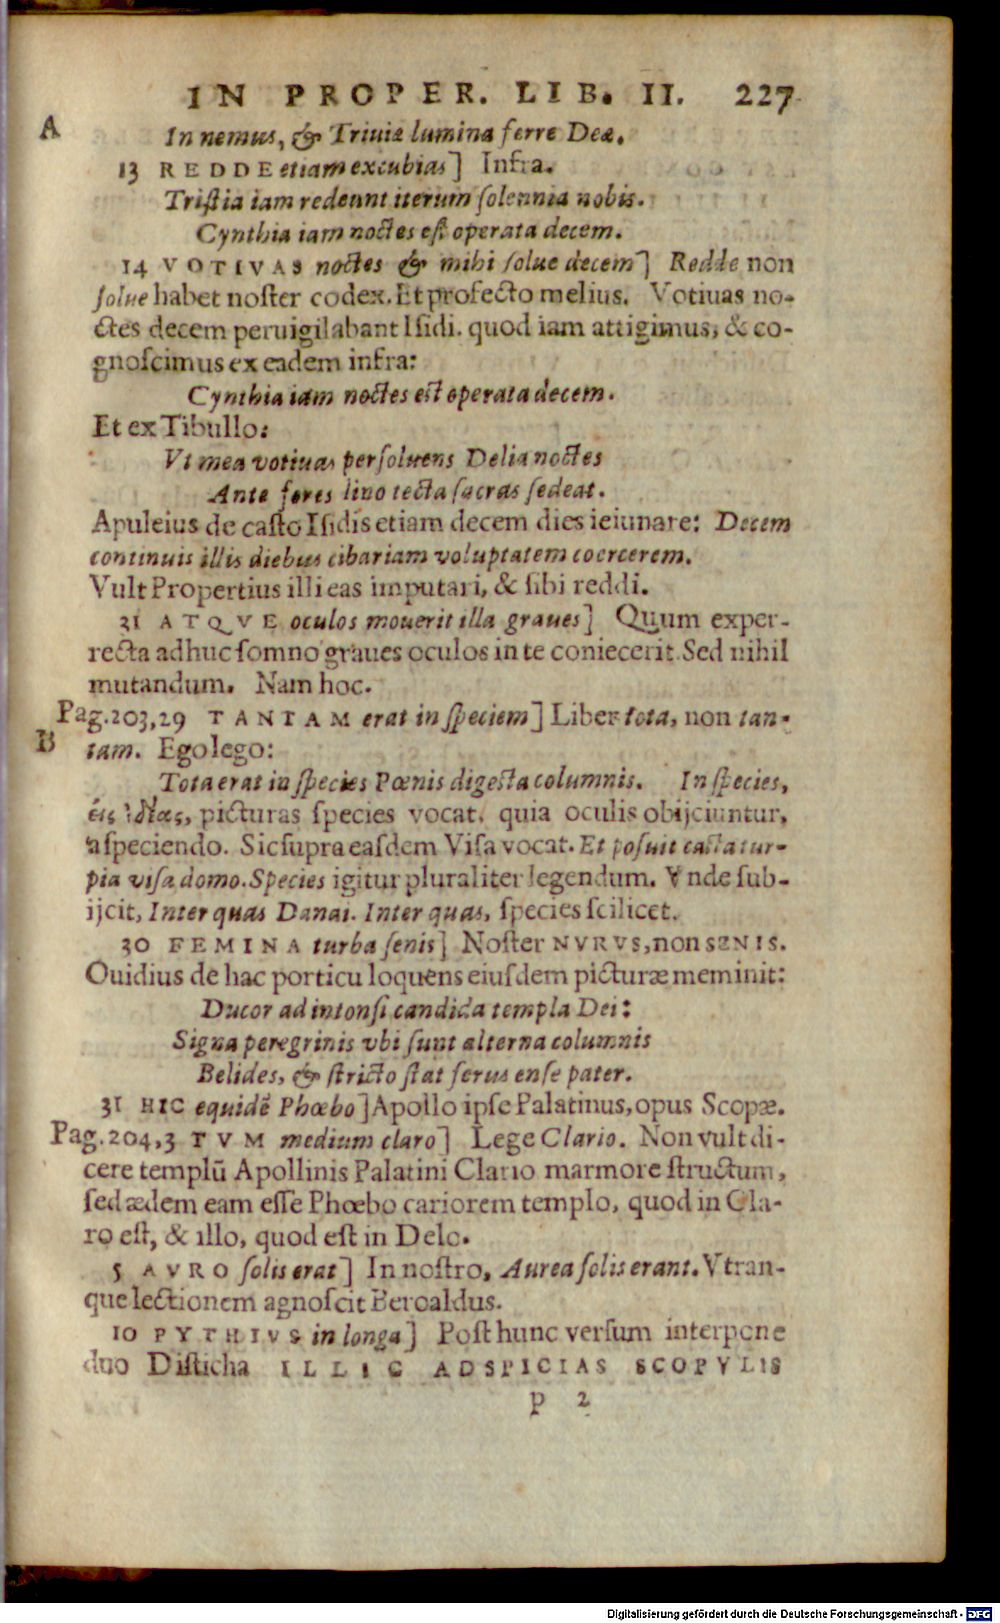 IN PROPER. LIB. II. 227
A
In nemus, & Triuiæ lumina ferre Deæ.
13 REDDE etiam excubias] Infra.
Tristia iam redeunt iterum solennia nobis.
Cynthia iam noctes est operata decem.
14 VOTIVAS noctes & mihi solue decem] Redde non
solue habet noster codex. Et profecto melius. Votiuas no-
ctes decem peruigilabant Isidi. quod iam attigimus, & co-
gnoscimus ex eadem infra:
Cynthia iam noctes est operata decem.
Et ex Tibullo:
Vt mea votiuas persoluens Delia noctes
Ante fores lino tecta sacras sedeat.
Apuleius de casto Isidis etiam decem dies ieiunare: Decem
continuis illis diebus cibariam voluptatem coercerem.
Vult Propertius illi eas imputari, & sibi reddi.
31 ATQVE oculos mouerit illa graues] Quum exper-
recta adhuc somno graues oculos in te coniecerit. Sed nihil
mutandum. Nam hoc.
Pag. 203, 29 TANTAM erat in speciem] Liber tota, non tan-
B
tam. Ego lego:
Tota erat in species Pœnis digesta columnis. In species,
εἰς ἰδέας, picturas species vocat. quia oculis obijciuntur,
aspeciendo. Sic supra easdem Visa vocat. Et posuit casta tur-
pia visa domo. Species igitur pluraliter legendum. Vnde sub-
ijcit, Inter quas Danai. Inter quas, species scilicet.
30 FEMINA turba senis] Noster NVRVS, non SENIS.
Ouidius de hac porticu loquens eiusdem picturæ meminit:
Ducor ad intonsi candida templa Dei:
Signa peregrinis vbi sunt alterna columnis
Belides, & stricto stat ferus ense pater.
31 HIC equidē Phœbo] Apollo ipse Palatinus, opus Scopæ.
Pag. 204, 3 TVM medium claro] Lege Clario. Non vult di-
cere templū Apollinis Palatini Clario marmore structum,
sed ædem eam esse Phœbo cariorem templo, quod in Cla-
ro est, & illo, quod est in Delo.
5 AVRO solis erat] In nostro, Aurea solis erant. Vtran-
que lectionem agnoscit Beroaldus.
10 PYTHIVS in longa] Post hunc versum interpone
duo Disticha ILLIC ADSPICIAS SCOPVLIS
p 2
Digitalisierung gefördert durch die Deutsche Forschungsgemeinschaft - DFG